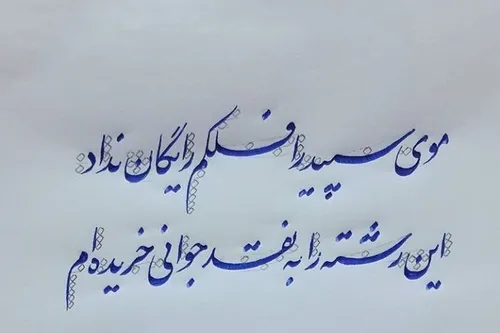 موی سپید را فلکم رایگان نداد
این رشته را به نقد جوانی خریده‌ام